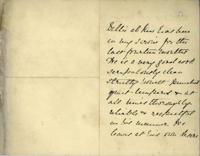 in my service for the
last fourteen months
He is a very good cook
scrupulously clean
strictly honest punctual
quiet tempered & at
all times thoroughly
reliable & respectful
in his manner. He
leaves at his own